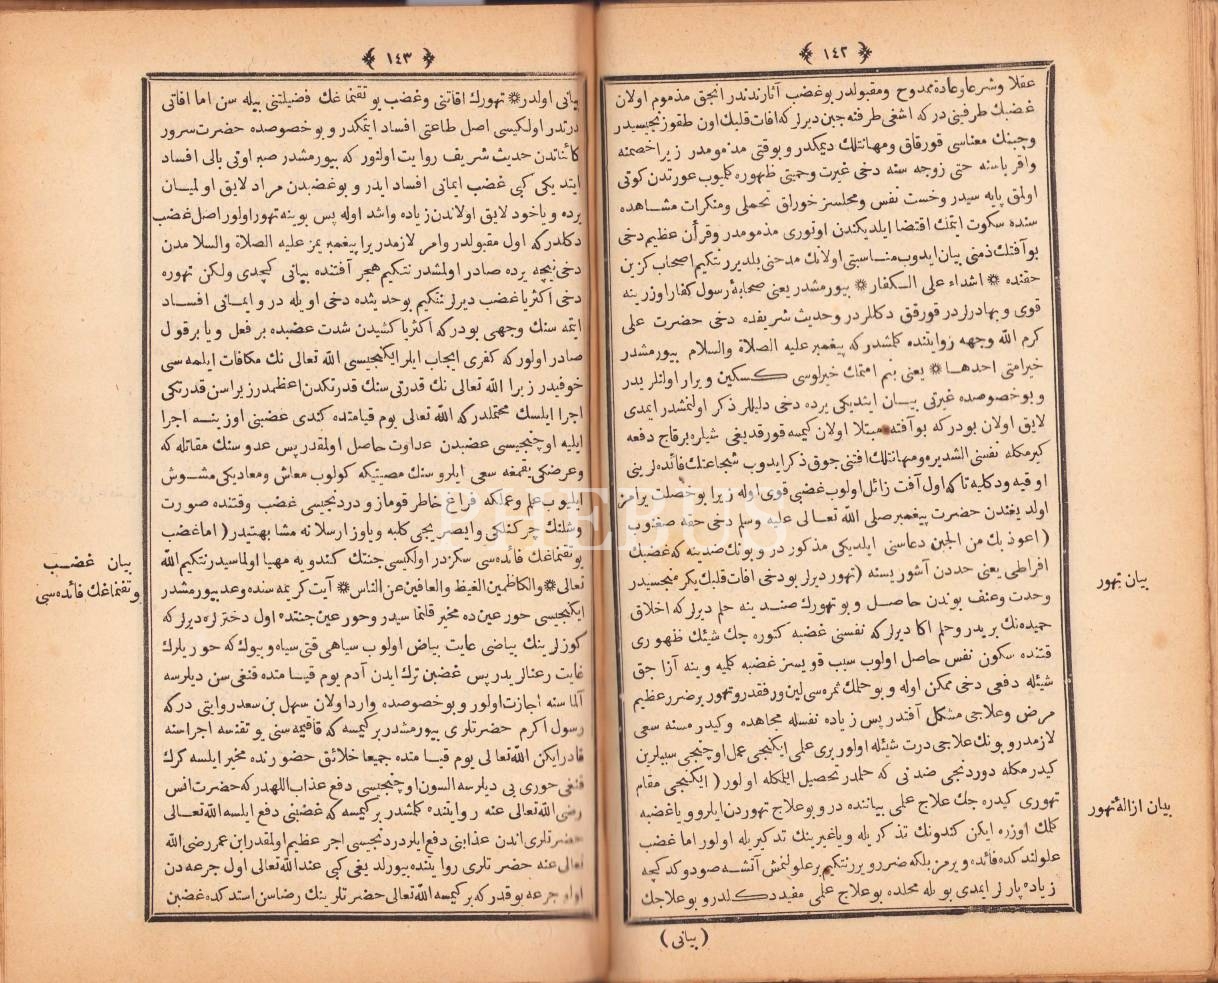 ﴿ ١٤٢ ﴾
عقلا وشرعا وعادة ممدوح ومقبولدر بو غضب آثارندندر انجق مذموم اولان
غضبك طرفينى در كه اشغى طرفنه جبن ديرلر كه افات قلبك اون طقوزنجيسيدر
وجبنك معناسى قورقاق ومهانتلك ديمكدر وبوقتى مذمومدر زيرا خصمنه
واقرباسنه حتى زوجه سنه دخى غيرت وحميتى ظهوره كليوب عورتدن كوتى
اولمق پايه سيدر وخست نفس ومحلسز خوراق تحملى ومنكرات مشاهده
سنده سكوت ايتمك اقتضا ايلديكندن اوتورى مذمومدر وقرأن عظيم دخى
بو آفتك ذمنى بيان ايدوب مناسبتى اولانك مدحنى بلديرر نتكيم اصحاب كزين
حقنده * اشداء على الكفار * بيورمشدر يعنى صحابۀ رسول كفار اوزرينه
قوى وبهادرلردر قورقق دكللردر وحديث شريفده دخى حضرت على
كرم الله وجهه روايتنده كلمشدر كه پيغمبر عليه الصلاة والسلام بيورمشدر
خير امتى احدها * يعنى بنم امتمك خيرلوسى كسكين ويرار اولانلريدر
وبو خصوصده غيرتى بيان ايتديكى يرده دخى دليللر ذكر اولنمشدر ايمدى
لايق اولان بودر كه بو آفته مبتلا اولان كيمسه قورقديغى شيلره برقاچ دفعه
كيرمكله نفسنى الشديره ومهانتلك افتنى چوق ذكر ايدوب شجاعتك فائده لرينى
اوقيه ودكليه تا كه اول آفت زائل اولوب غضبى قوى اوله زيرا بو خصلت يرامز
اولديغندن حضرت پيغمبر صلى الله تعالى عليه وسلم دخى حقه صغنوب
( اعوذ بك من الجبن دعاسنى ايلديكى مذكور در وبونك ضدينه كه غضبك
افراطى يعنى حددن آشوريسنه (تهور ديرلر بو دخى افات قلبك يكرمنجيسيدر
وحدت وعنف بوندن حاصل وبو تهورك ضدينه حلم ديرلر كه اخلاق
حميده نك بريدر وحلم اكا ديرلر كه نفسنى غضبه كتوره جك شيئك ظهورى
قتنده سكون نفس حاصل اولوب سبب قويسز غضبه كلميه وينه آزاجق
شيئله دفعى دخى ممكن اوله وبو حلمك ثمره سى لين ورفقدر وتهور بر ضرر عظيم
مرض وعلاجى مشكل آفتدر پس زياده نفسله مجاهده وكيدرمسنه سعى
لازمدر وبونك علاجى درت شيئله اولور برى علمى ايكنجى عمل اوچنجى سببلرين
كيدرمكله دوردنجى ضدنى كه حلمدر تحصيل ايلمكله اولور ( ايكنجى مقام
تهورى كيدره جك علاج علمى بياننده در وبو علاج تهوردن ايلرو ويا غضبه
كلمك اوزره ايكن كندونك تذكريله وياغيرينك تذكيريله اولور اما غضب
علولند كده فائده ويرمز بلكه ضرر ويرر نتكيم بر علولنمش آتشه صو دوكدكجه
زياده پارلر ايمدى بويله محلده بو علاج علمى مفيد دكلدر وبو علاجك
( بيانى )
بيان تهور
بيان ازالۀ تهور
﴿ ١٤٣ ﴾
بيانى اولدر * تهورك افاتنى وغضب يوتقنماغك فضيلتنى بيله سن اما افاتى
درتدر اولكيسى اصل طاعتى افساد ايتمكدر وبو خصوصده حضرت سرور
كائناتدن حديث شريف روايت اولنور كه بيورمشدر صبر اوتى بالى افساد
ايتديكى كبى غضب ايمانى افساد ايدر وبو غضبدن مراد لايق اولميان
يرده وياخود لايق اولاندن زياده واشد اوله پس بو ينه تهور اولور اصل غضب
دكلدر كه اول مقبولدر وامر لازمدر زيرا پيغمبريمز عليه الصلاة والسلامدن
دخى نيچه يرده صادر اولمشدر نتكيم هجر آفتنده بيانى كچيدى ولكن تهوره
دخى اكثريا غضب ديرلر نتكيم بو حديثده دخى اويله در وايمانى افساد
ايتمه سنك وجهى بودر كه اكثريا كشيدن شدت غضبده بر فعل ويا بر قول
صادر اولور كه كفرى ايجاب ايلر ايكنجيسى الله تعالى نك مكافات ايلمه سى
خوفيدر زيرا الله تعالى نك قدرتى سنك قدرتكدن اعظمدر زيرا سن قدرتكى
اجرا ايلسك محتملدر كه الله تعالى يوم قيامتده كندى غضبنى اوزينه اجرا
ايليه اوچنجيسى غضبدن عداوت حاصل اولمقدر پس عدو سنك مقاتله كه
وعرضكى يقمغه سعى ايلر وسنك مصيبتيكه كولوب معاش ومعاديكى مشوش
ايليوب علم وعملكه فراغ خاطر قوماز ودردنجيسى غضب وقتنده صورت
وشكلك چركنلكى وايصريجى كلبه وياوز ارسلانه مشابهتيدر ( اما غضب
يوتقنماغك فائده سى سكزدر اولكيسى جنتك كندويه مهيا اولماسيدر نتكيم الله
تعالى * والكاظمين الغيظ والعافين عن الناس * آيت كريمه سنده وعد بيورمشدر
ايكنجيسى حور عينده مخير قلنماسيدر وحور عين جنتده اول دخترلره ديرلر كه
كوزلرينك بياضى غايت بياض اولوب سياهى قتى سياه وبيوك كه حوريلرك
غايت رعنالريدر پس غضبن ترك ايدن آدم يوم قيامتده قنغى سن ديلرسه
آلماسنه اجازت اولور وبو خصوصده وارد اولان سهل بن سعد روايتى در كه
رسول اكرم حضرتلرى بيورمشدر بر كيمسه كه قاقيمه سنى يوتقنسه اجراسنه
قادر ايكن الله تعالى يوم قيامتده جميعا خلائق حضورنده مخير ايلسه كرك
قنغى حورى يى ديلرسه السون اوچنجيسى دفع عذاب اللهدر كه حضرت انس
رضى الله تعالى عنه روايتنده كلمشدر بر كيمسه كه غضبنى دفع ايلسه الله تعالى
حضرتلرى اندن عذابنى دفع ايلر دردنجيسى اجر عظيم اولمقدر ابن عمر رضى الله
تعالى عنه حضرتلرى روايتنده بيورلديغى كبى عند الله تعالى اول جرعه دن
اولو جرعه يوقدر كه بر كيمسه الله تعالى حضرتلرينك رضاسن استدكده غضبن
بيان غضب
يوتقنماغك فائده سى
PHEBUS